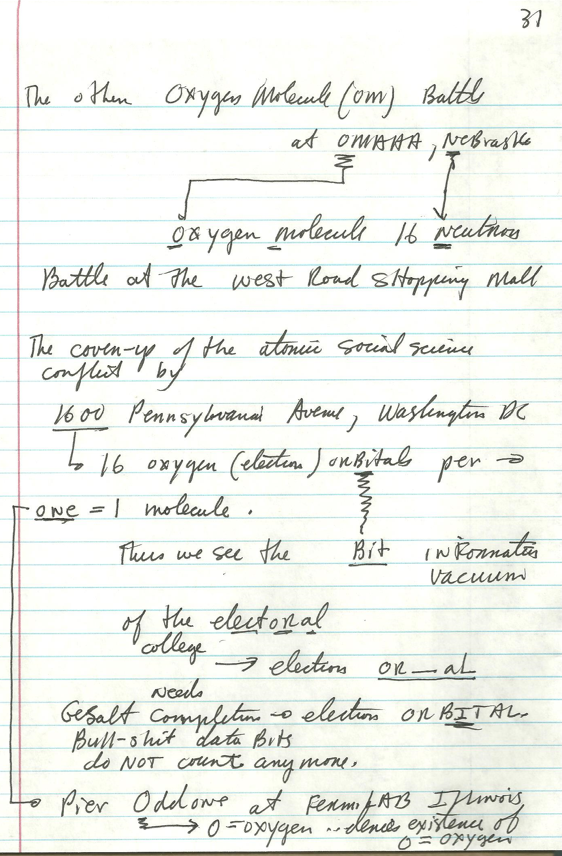 31
The other Oxygen Molecule (OM) Battle
at OMAHA, NeBraska
Oxygen molecule 16 Neutrons
Battle at the west Road SHopping Mall
The cover-up of the atomic social science
conflict by
1600 Pennsylvania Avenue, Washington DC
16 oxygen (election) orBitals per →
one = 1 molecule.
Thus we see the Bit information
vacuum
of the electoral
college
→ election OR__aL
Needs
GeSalt Completion → election ORBITAL.
Bull-shit data Bits
do NOT count anymore.
Pier Oddone at FermilAB Illinois
→ O = oxygen -- denies existence of
O = oxygen